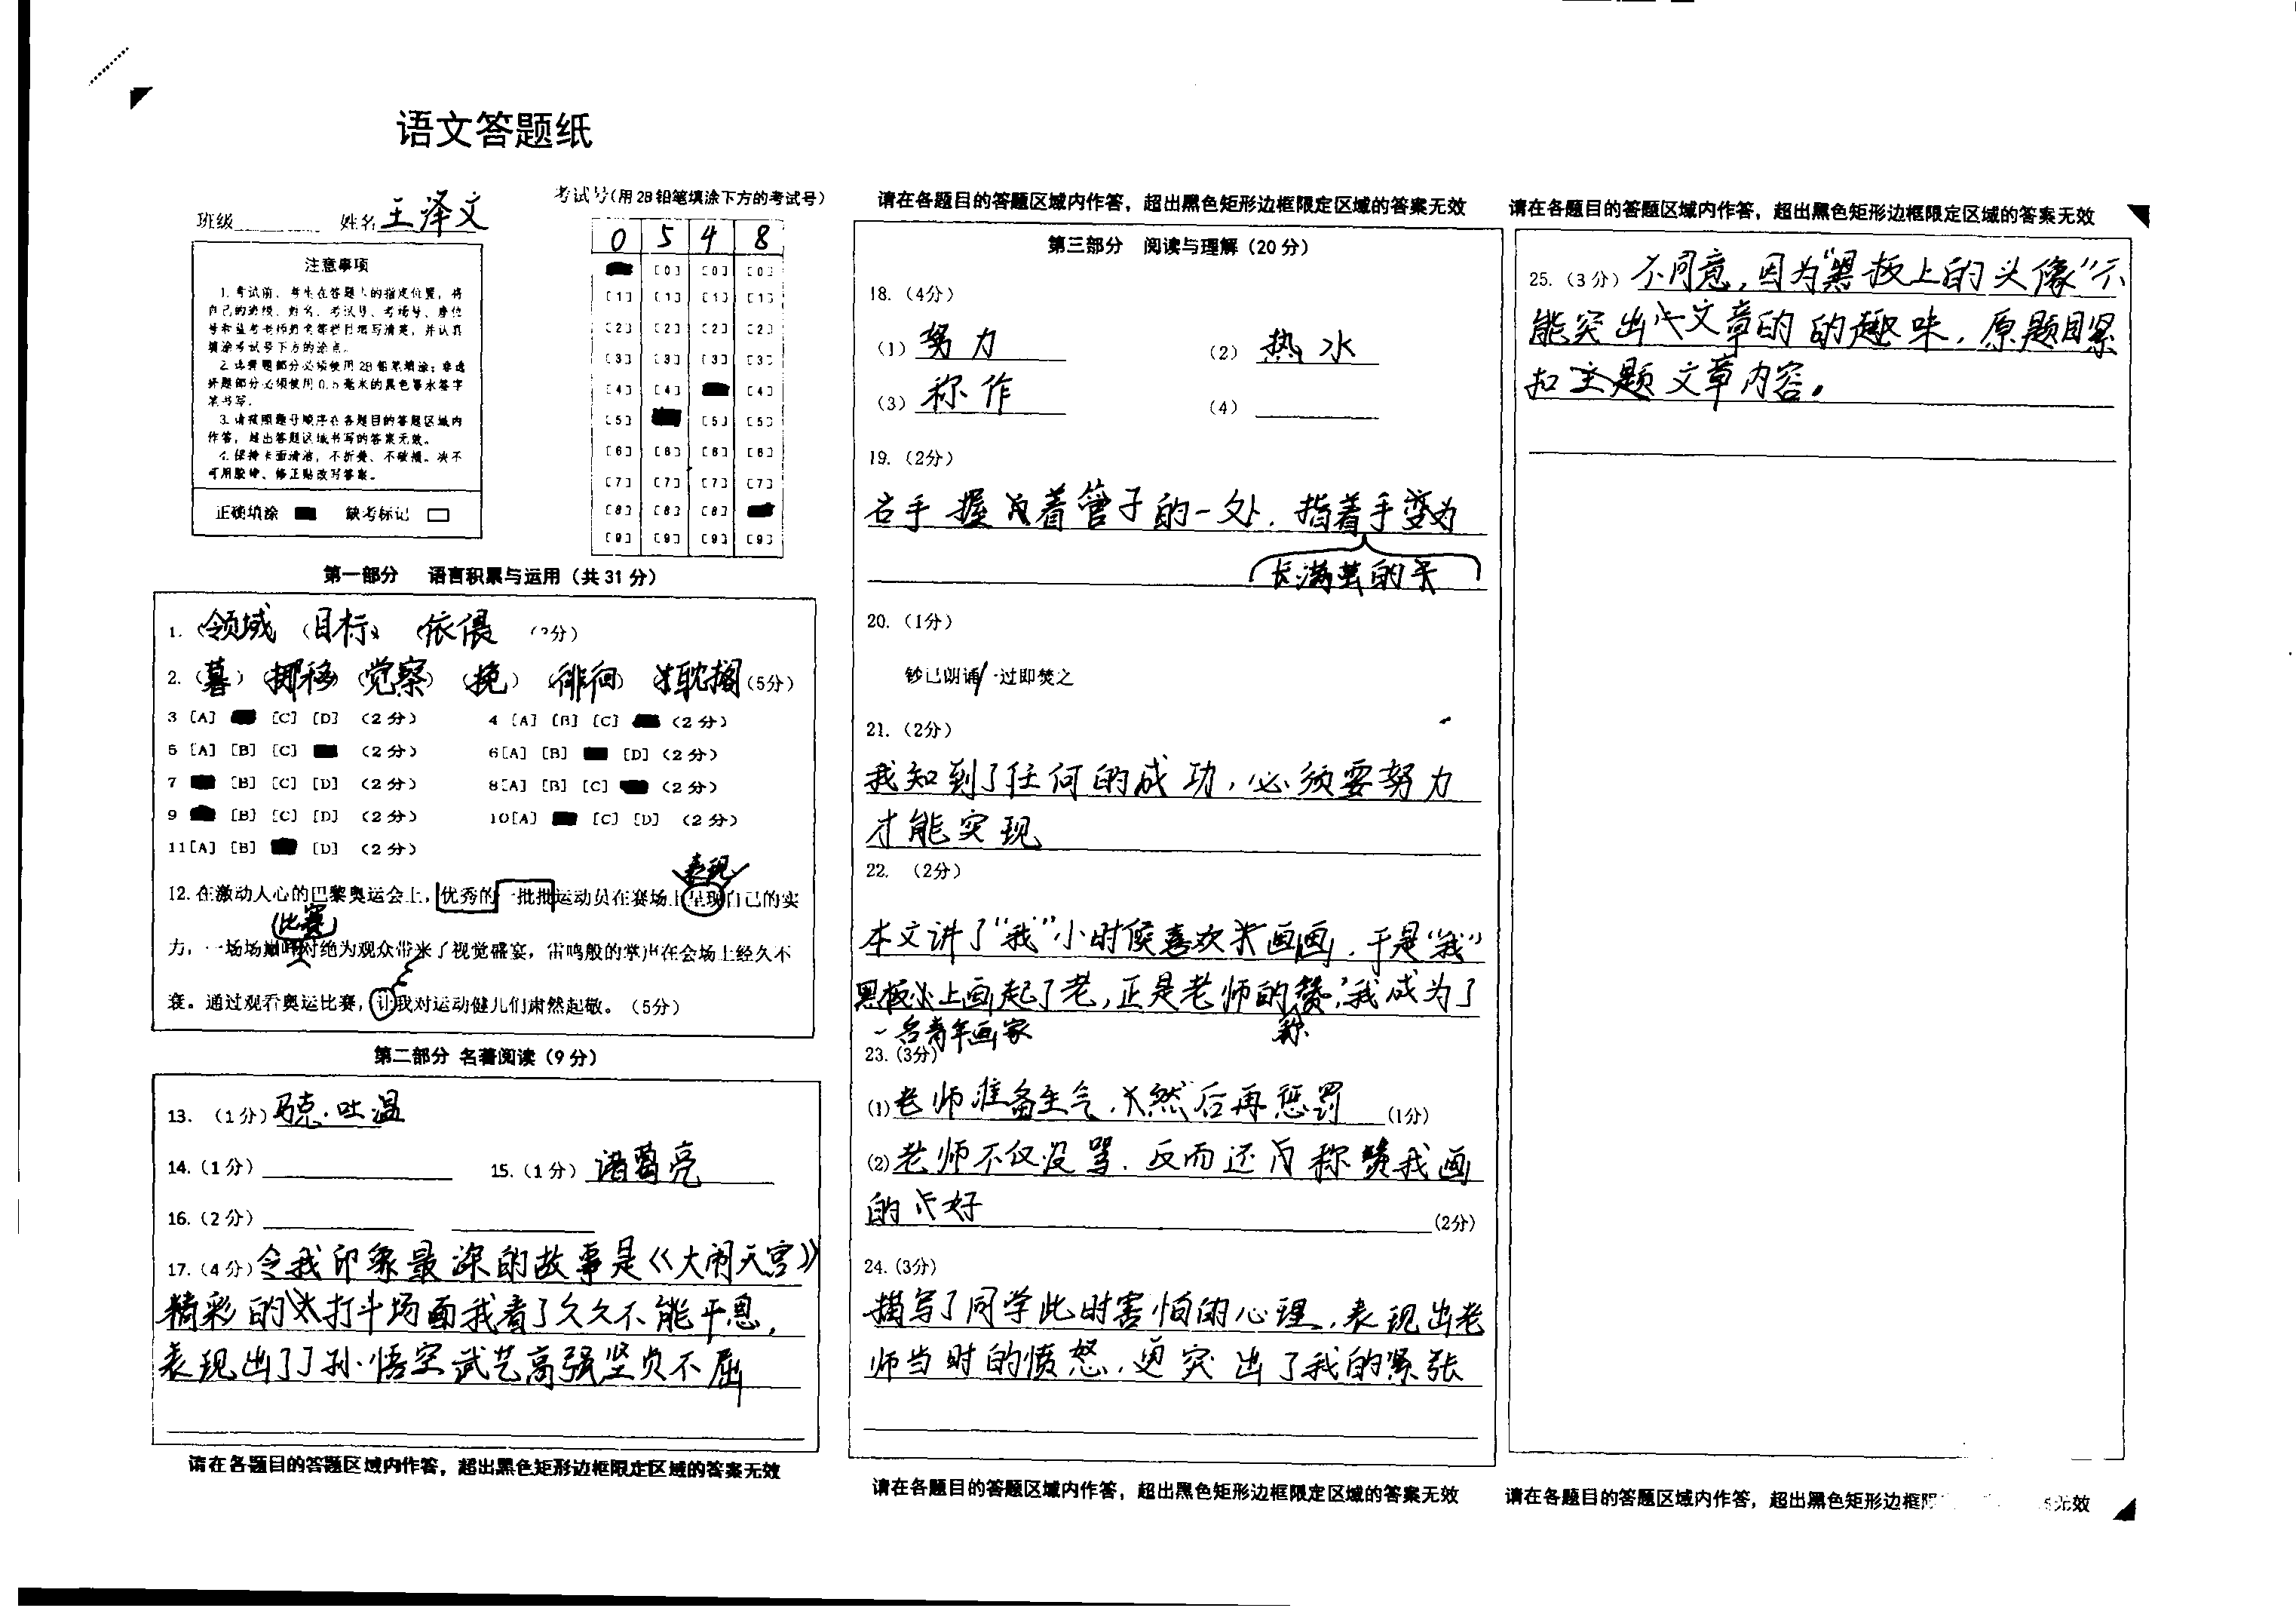 语文答题纸
班级 姓名 王泽文
考试号(用2B铅笔填涂下方的考试号)
0 5 4 8
[0] [0] [0]
[1] [1] [1] [1]
[2] [2] [2] [2]
[3] [3] [3] [3]
[4] [4] [4]
[5] [5] [5]
[6] [6] [6] [6]
[7] [7] [7] [7]
[8] [8] [8]
[9] [9] [9] [9]
注意事项
1. 考试前，考生在答题卡的指定位置，将
自己的班级、姓名、考试号、考场号、座位
号和监考老师姓名等栏目填写清楚，并认真
填涂考试号下方的涂点。
2. 选择题部分必须使用2B铅笔填涂；非选
择题部分必须使用0.5毫米的黑色墨水签字
笔书写。
3. 请按照题号顺序在各题目的答题区域内
作答，超出答题区域书写的答案无效。
4. 保持卡面清洁，不折叠、不破损。决不
可用胶带、修正贴改写答案。
正确填涂 缺考标记
第一部分 语言积累与运用（共31分）
1.（领域）（目标）（依偎）（2分）
2.（暮）（挪移）（觉察）（挽）（徘徊）（耽搁）（5分）
3 [A] [C] [D] （2分） 4 [A] [B] [C] （2分）
5 [A] [B] [C] （2分） 6[A] [B] [D]（2分）
7 [B] [C] [D] （2分） 8[A] [B] [C] （2分）
9 [B] [C] [D] （2分） 10[A] [C] [D] （2分）
11[A] [B] [D] （2分）
表现
12. 在激动人心的巴黎奥运会上，优秀的一批批运动员在赛场上呈现自己的实
（比赛）
力，一场场巅峰对绝为观众带来了视觉盛宴，雷鸣般的掌声在会场上经久不
衰。通过观看奥运比赛，让我对运动健儿们肃然起敬。（5分）
第二部分 名著阅读（9分）
13. （1分）马克·吐温
14.（1分） 15.（1分）诸葛亮
16.（2分）
17.（4分）令我印象最深的故事是《大闹天宫》
精彩的打斗场面我看了久久不能平息，
表现出了孙悟空武艺高强坚贞不屈
请在各题目的答题区域内作答，超出黑色矩形边框限定区域的答案无效
请在各题目的答题区域内作答，超出黑色矩形边框限定区域的答案无效
第三部分 阅读与理解（20分）
18.（4分）
（1）努力 （2）热水
（3）称作 （4）
19.（2分）
右手握着管子的一处，指着手变为
长满茧的手
20.（1分）
钞已朗诵/一过即焚之
21.（2分）
我知到了任何的成功，必须要努力
才能实现
22. （2分）
本文讲了“我”小时侯喜欢画画，于是“我”
黑板上画起了老，正是老师的赞，我成为了
称
一名青年画家
23.（3分）
(1)老师准备生气，然后再惩罚 (1分)
(2)老师不仅没骂，反而还称赞我画
的好 (2分)
24.（3分）
描写了同学此时害怕的心理，表现出老
师当时的愤怒，更突出了我的紧张
请在各题目的答题区域内作答，超出黑色矩形边框限定区域的答案无效
请在各题目的答题区域内作答，超出黑色矩形边框限定区域的答案无效
25.（3分）不同意，因为“黑板上的头像”不
能突出文章的的趣味，原题目紧
扣主题文章内容。
请在各题目的答题区域内作答，超出黑色矩形边框 无效